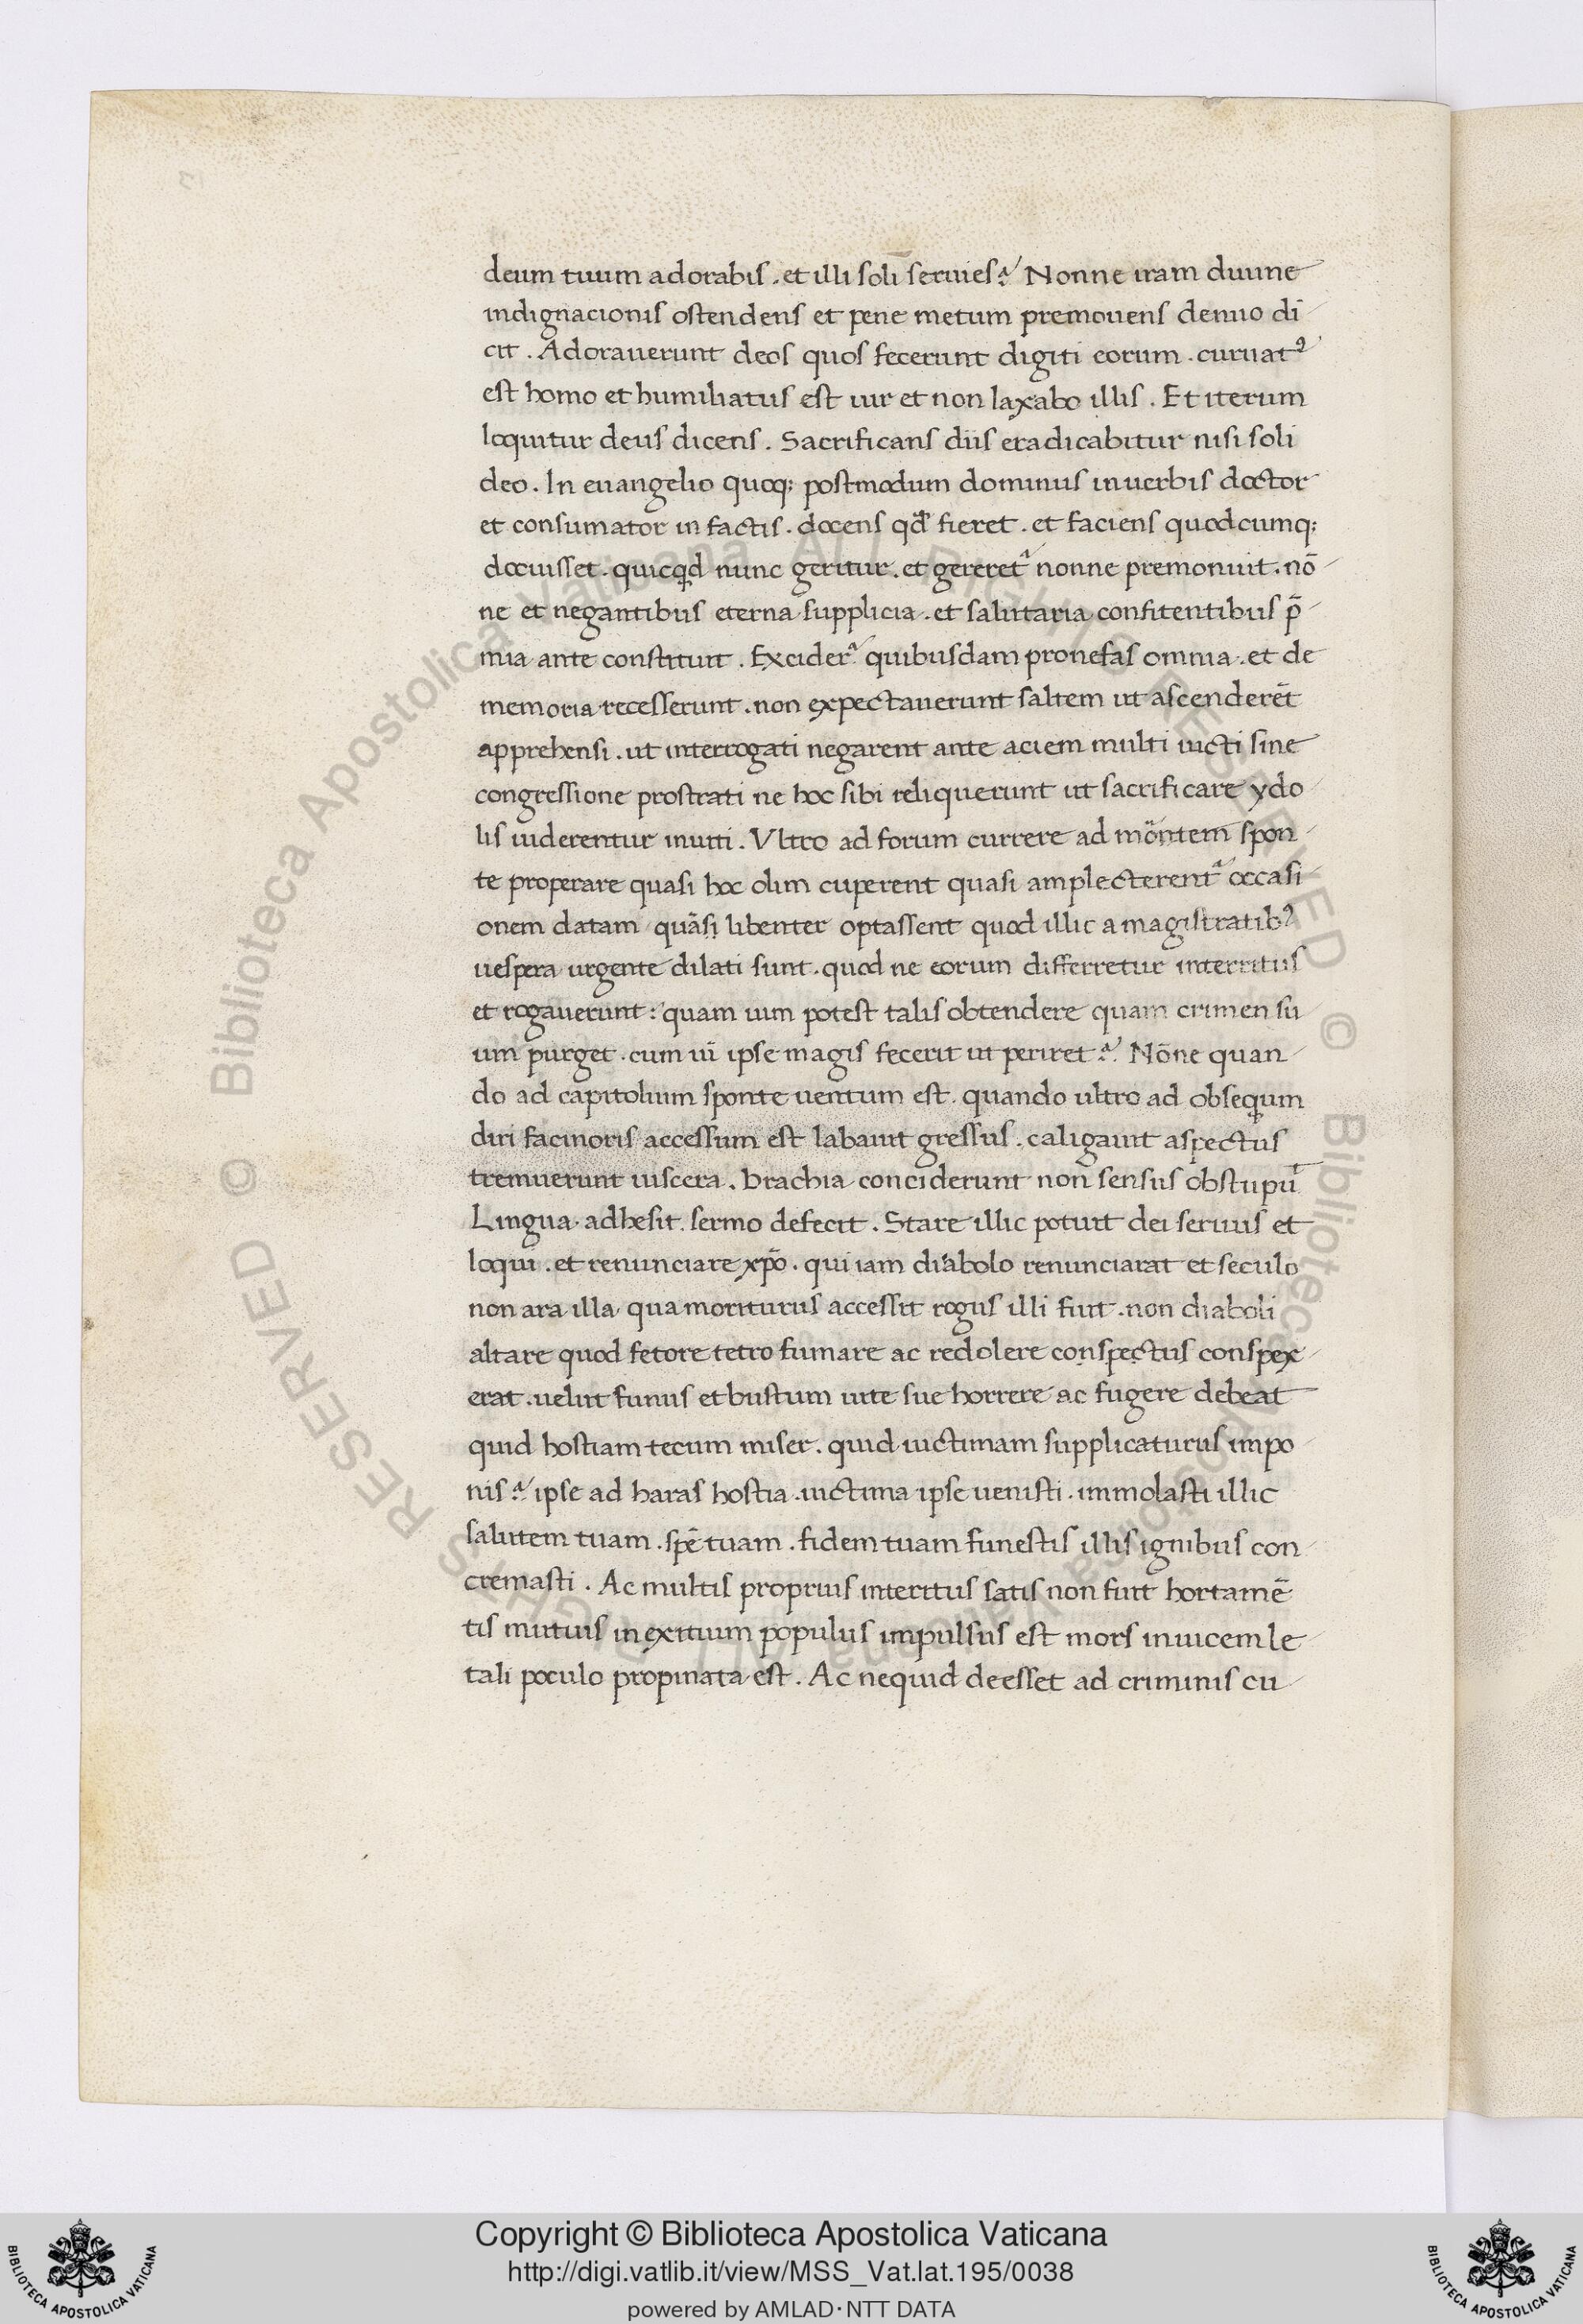 deum tuum adorabis . et illi soli seruies? Nonne iram diuine
indignacionis ostendens et pene metum premouens denuo di
cit . Adorauerunt deos quos fecerunt digiti eorum . curuatꝰ
est homo et humiliatus est uir et non laxabo illis . Et iterum
loquitur deus dicens . Sacrificans diis eradicabitur nisi soli
deo . In euangelio quoq; postmodum dominus in uerbis doctor
et consumator in factis . docens qđ fieret . et faciens quodcumq;
docuisset . quicqd nunc geritur . et gereret᷑ nonne premonuit . nō
ne et negantibus eterna supplicia . et salutaria confitentibus p̄
mia ante constituit . Excider᷑ quibusdam pronefas omnia . et de
memoria recesserunt . non expectauerunt saltem ut ascenderēt
apprehensi . ut interrogati negarent ante aciem multi uicti sine
congressione prostrati ne hoc sibi reliquerunt ut sacrificare ydo
lis uiderentur inuiti . Vltro ad forum currere ad montem spon
te properare quasi hoc olim cuperent quasi amplecterent᷑ occasi
onem datam quāsi libenter optassent quod illic a magistratibꝰ
uespera urgente dilati sunt . quod ne eorum differretur interitus
et rogauerunt : quam uim potest talis obtendere quam crimen su
um purget . cum uī ipse magis fecerit ut periret ? Nōne quan
do ad capitolium sponte uentum est . quando ultro ad obsequm
diri facinoris accessum est labauit gressus . caligauit aspectus
tremuerunt uiscera . brachia conciderunt non sensus obstupū
Lingua adhesit . sermo defecit . Stare illic potuit dei seruus et
loqui . et renunciare xp̄o . qui iam diabolo renunciarat et seculo
non ara illa qua moriturus accessit rogus illi fuit . non diaboli
altare quod fetore tetro fumare ac redolere conspectus conspex
erat . uelut funus et bustum uite sue horrere ac fugere debeat
quid hostiam tecum miser . quid uictimam supplicaturus impo
nis ? ipse ad haras hostia . uictima ipse uenisti . immolasti illic
salutem tuam . spē tuam . fidem tuam funestis illis ignibus con
cremasti . Ac multis proprius interitus satis non fuit hortamē
tis mutuis in exitium populus impulsus est mors inuicem le
tali poculo propinata est . Ac nequid deesset ad criminis cu
Copyright © Biblioteca Apostolica Vaticana
http://digi.vatlib.it/view/MSS_Vat.lat.195/0038
powered by AMLAD·NTT DATA